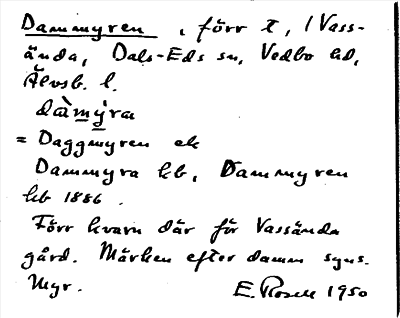 Dammyren, förr t, i Vass-
ända, Dals-Eds sn, Vedbo hd,
Älvsb. l.
dàmýra
= Daggmyren ek
Dammyra hb, Dammyren
hb 1886.
Förr kvarn där för Vassända
gård. Märken efter damm syns.
Myr. E. Rosell 1950